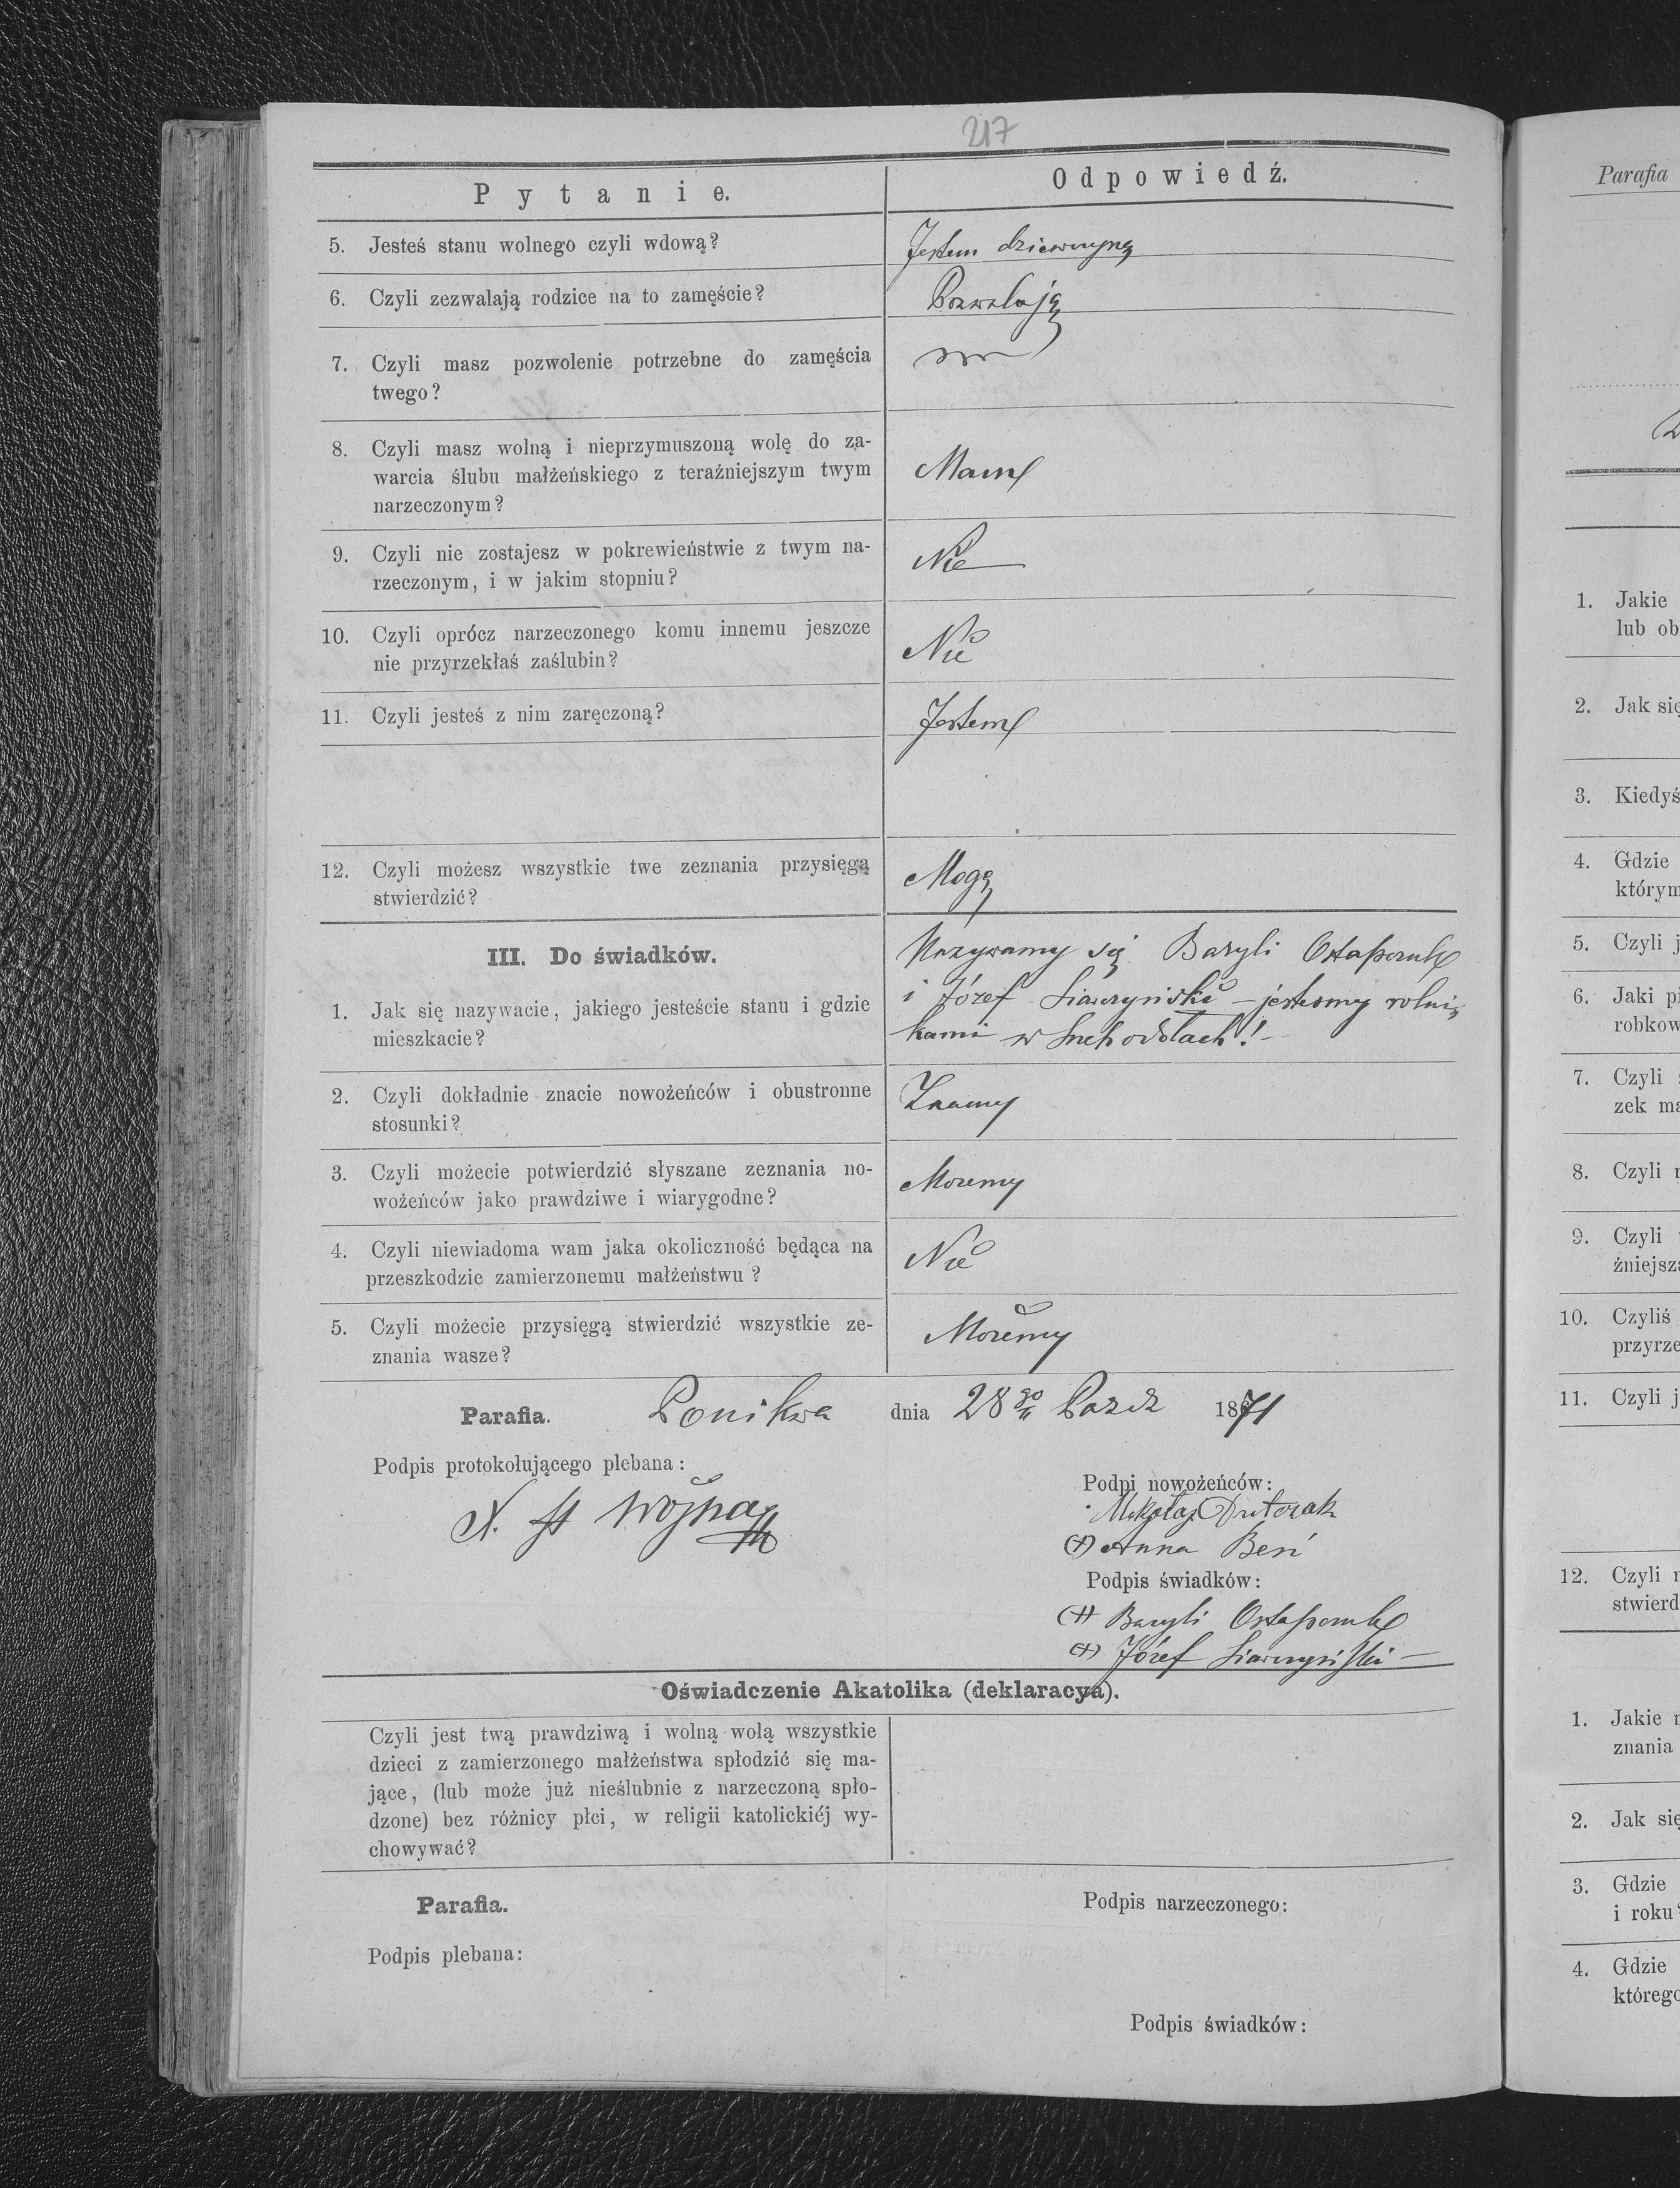 217
Pytanie.
Odpowiedź.
5. Jesteś stanu wolnego czyli wdową?
Jestem dziewczyną
6. Czyli zezwalają rodzice na to zamęście?
Pozwalają
7. Czyli masz pozwolenie potrzebne do zamęścia
twego?
8. Czyli masz wolną i nieprzymuszoną wolę do za-
warcia ślubu małżeńskiego z teraźniejszym twym
narzeczonym?
Mam
9. Czyli nie zostajesz w pokrewieństwie z twym na-
rzeczonym, i w jakim stopniu?
Nie
10. Czyli oprócz narzeczonego komu innemu jeszcze
nie przyrzekłaś zaślubin?
Nie
11. Czyli jesteś z nim zaręczoną?
Jestem
12. Czyli możesz wszystkie twe zeznania przysięgą
stwierdzić?
Mogę
III. Do świadków.
1. Jak się nazywacie, jakiego jesteście stanu i gdzie
mieszkacie?
Nazywamy się Bazyli Ostapczuk
i Józef – jestesmy rolni-
kami w Suchodołach!-
2. Czyli dokładnie znacie nowożeńców i obustronne
stosunki?
Znamy
3. Czyli możecie potwierdzić słyszane zeznania no-
wożeńców jako prawdziwe i wiarygodne?
Mozemy
4. Czyli niewiadoma wam jaka okoliczność będąca na
przeszkodzie zamierzonemu małżeństwu?
Nie
5. Czyli możecie przysięgą stwierdzić wszystkie ze-
znania wasze?
Mozemy
Parafia. Ponikwa dnia 28go Pazdz 1871
Podpis protokołującego plebana:
X. St Wojna
Podpi nowożeńców:
Mikołaj Dutczak
(+) Anna Beń
Podpis świadków:
(+) Bazyli Ostapczuk
(+) Józef
Oświadczenie Akatolika (deklaracya).
Czyli jest twą prawdziwą i wolną wolą wszystkie
dzieci z zamierzonego małżeństwa spłodzić się ma-
jące, (lub może już nieślubnie z narzeczoną spło-
dzone) bez różnicy płci, w religii katolickiéj wy-
chowywać?
Parafia.
Podpis plebana:
Podpis narzeczonego:
Podpis świadków:
Parafia
1. Jakie
lub ob
2. Jak się
3. Kiedyś
4. Gdzie
którym
5. Czyli j
6. Jaki pi
robkow
7. Czyli
zek ma
8. Czyli
9. Czyli
źniejsza
10. Czyliś
przyrze
11. Czyli j
12. Czyli
stwierd
1. Jakie
znania
2. Jak się
3. Gdzie
i roku
4. Gdzie
którego